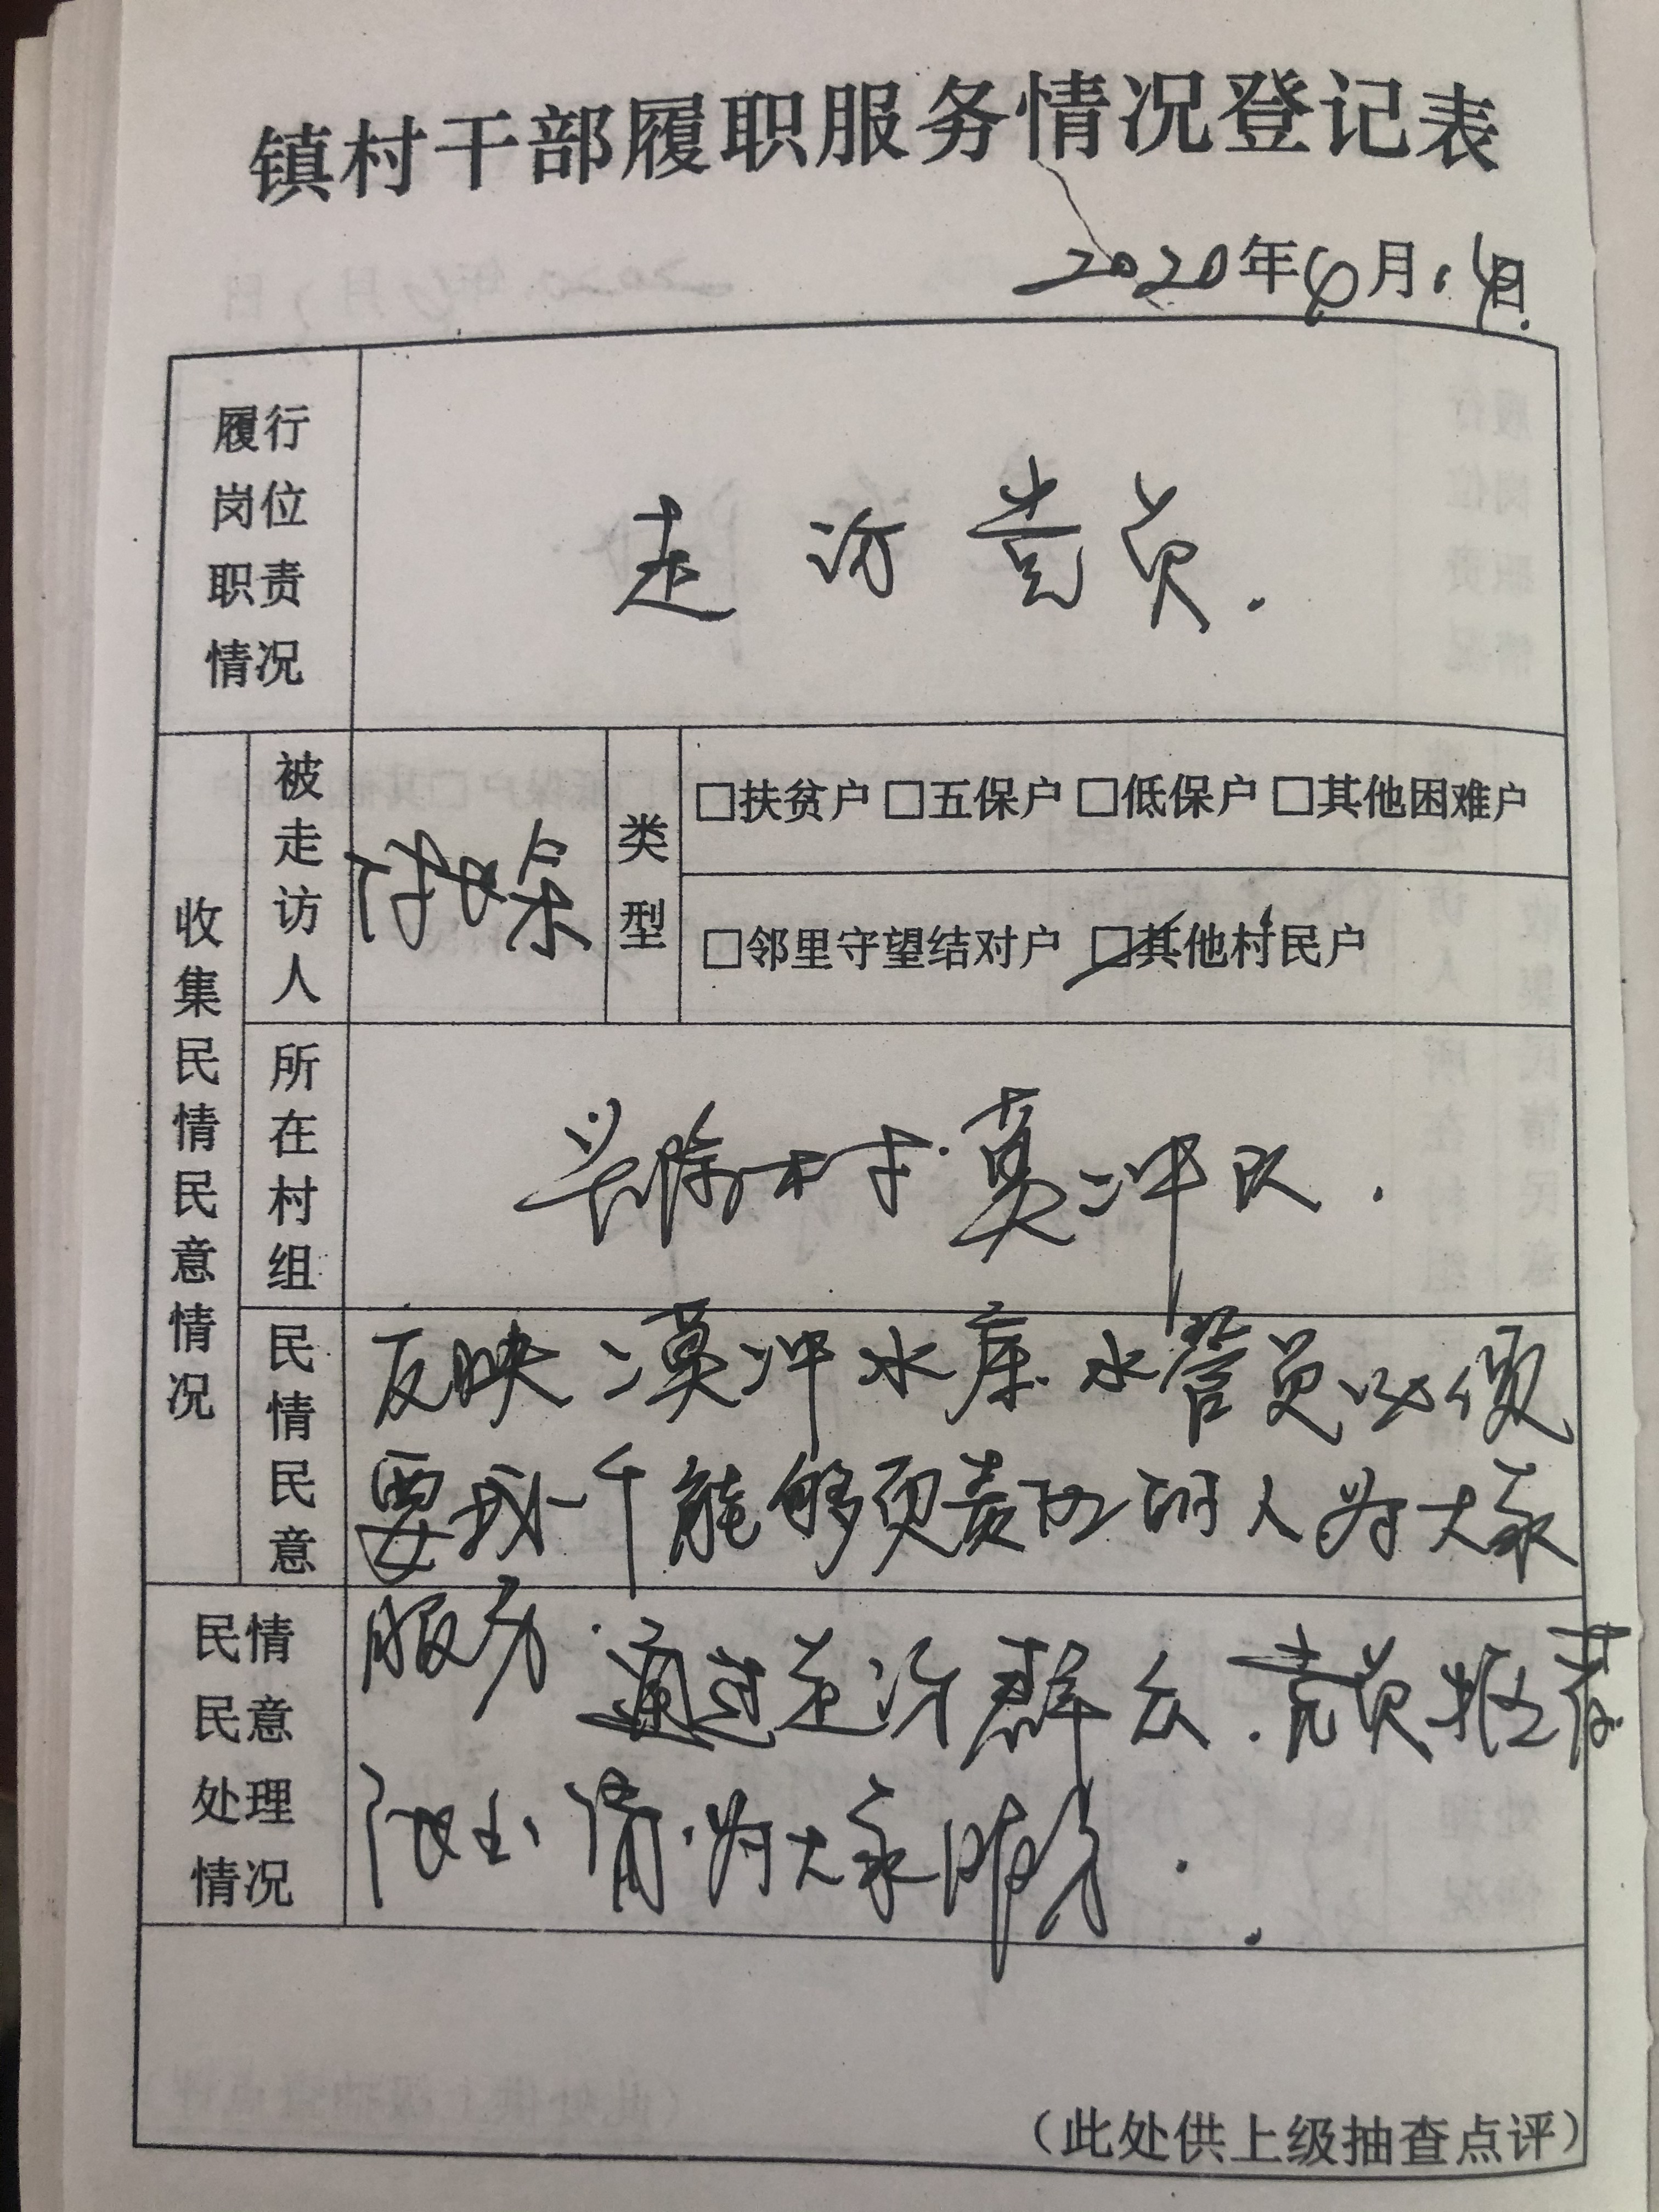 镇村干部履职服务情况登记表
2020年6月14日
履行岗位职责情况
走访党员.
收集民情民意情况
被走访人
类型
□扶贫户 □五保户 □低保户 □其他困难户
□邻里守望结对户 □其他村民户
所在村组
村.莫冲队.
民情民意
反映漠冲水库水管员必须
要找一个能够负责任的人为大家
服务.
民情民意处理情况
通过走访群众.党员推荐
为大家服务.
(此处供上级抽查点评)